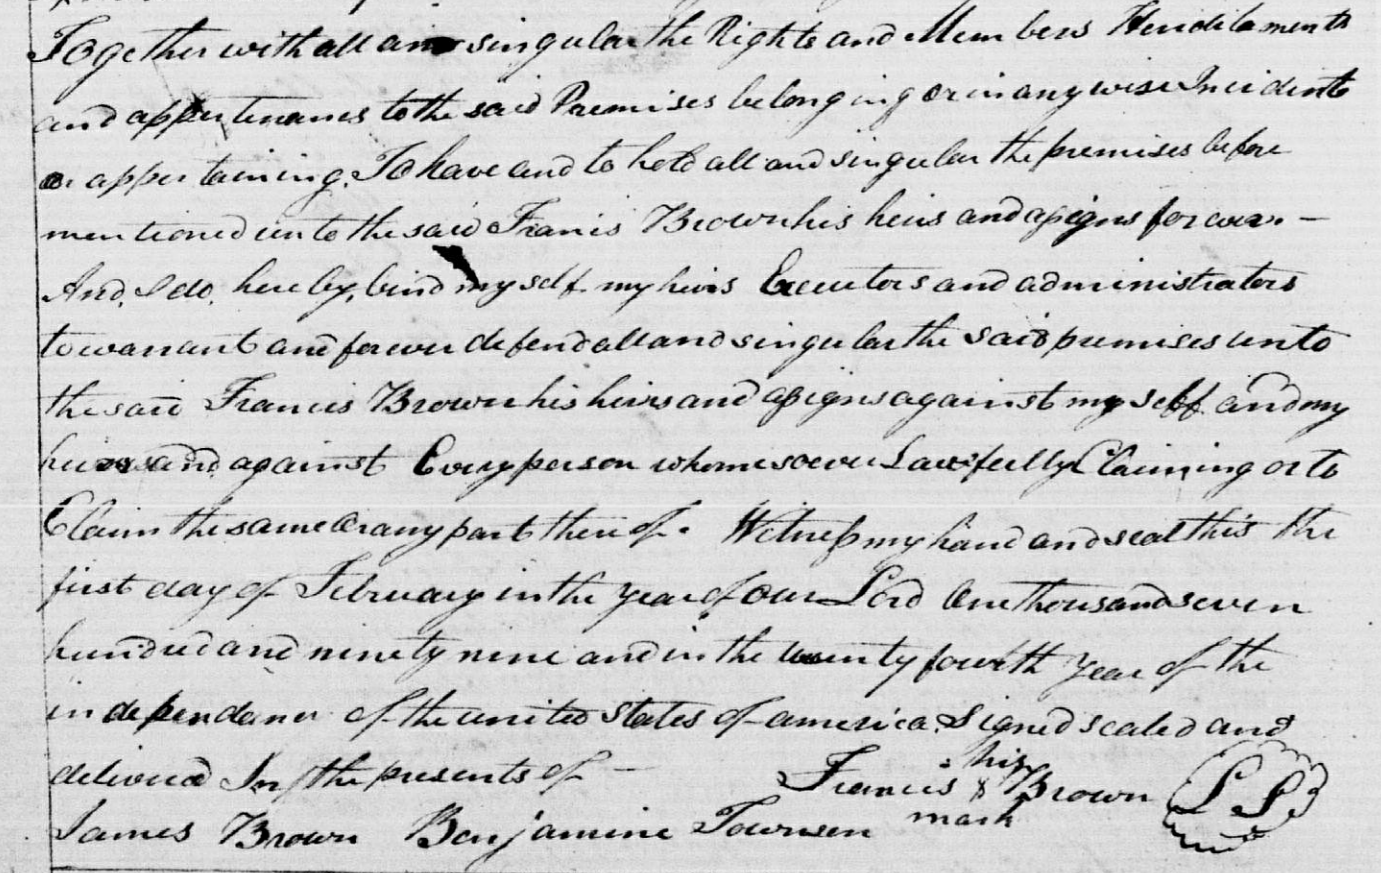 Together with all and singular the Rights and Members Heriditaments
and appertenances to the said Premises belonging or in any wise Incidents
or appertaining. To have and to hold all and singular the premises before
mentioned unto the said Francis Brown his heirs and assigns for ever. —
And, I do, hereby, bind my self my heirs Executors and administrators
to warrant and forever defend all and singular the said premises unto
the said Francis Brown his heirs and assigns against my self and my
heirs and against Every person whomesoever Lawfully Claiming or to
Claim the same Or any part there of. Witness my hand and seal this the
first day of February in the year of our Lord One thousand seven
hundred and ninety nine and in the twenty fourth year of the
independance of the united States of america. Signed sealed and
delivered In the presents of — his
Francis x Brown L S
mark
James Brown Benjamine Townsen